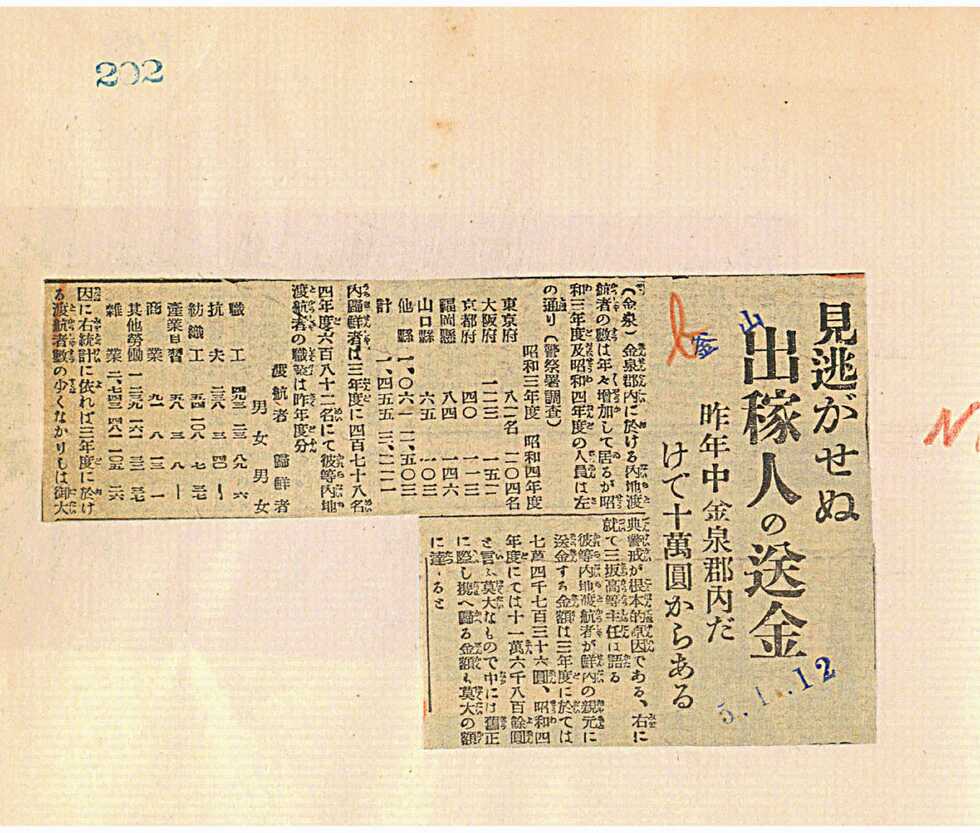 202
見逃がせぬ
出稼人の送金
昨年中金泉郡内だ
けで十萬圓からある
山
釜
5.1.12
(金泉)金泉郡内に於ける内地渡
航者の數は年々增加して居るが昭
和三年度及昭和四年度の人員は左
の通り(警察署調査)
昭和三年度 昭和四年度
東京府 八二名 二〇四名
大阪府 一二三 一五二
京都府 四〇 一一三
福岡縣 八四 一四六
山口縣 六五 一〇三
他縣 一、〇六一 二、五〇三
計 一、四五五 三、二二一
内歸鮮者は三年度に四百七十八名
四年度六百八十二名にて彼等内地
渡航者の職業は昨年度分
渡航者 歸鮮者
男 女 男 女
職工
坑夫
紡織工
商業
其他勞働
雜業
因に右統計に依れば三年度に於け
る渡航者數の少くなかりしは御大
典警戒が根本的原因である、右に
就て三坂高等主任は語る
彼等内地渡航者が鮮内の親元に
送金する金額は三年度に於ては
七萬四千七百三十六圓、昭和四
年度にては十一萬六千八百餘圓
と言ふ莫大なもので中には舊正
に際し携へ歸る金額も莫大の額
に達すると